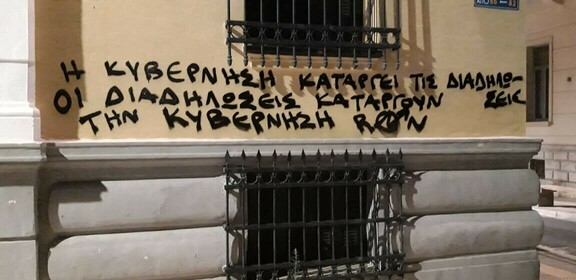 Η ΚΥΒΕΡΝΗΣΗ ΚΑΤΑΡΓΕΙ ΤΙΣ ΔΙΑΔΗΛΩ-
ΟΙ ΔΙΑΔΗΛΩΣΕΙΣ ΚΑΤΑΡΓΟΥΝ ΣΕΙΣ
ΤΗΝ ΚΥΒΕΡΝΗΣΗ